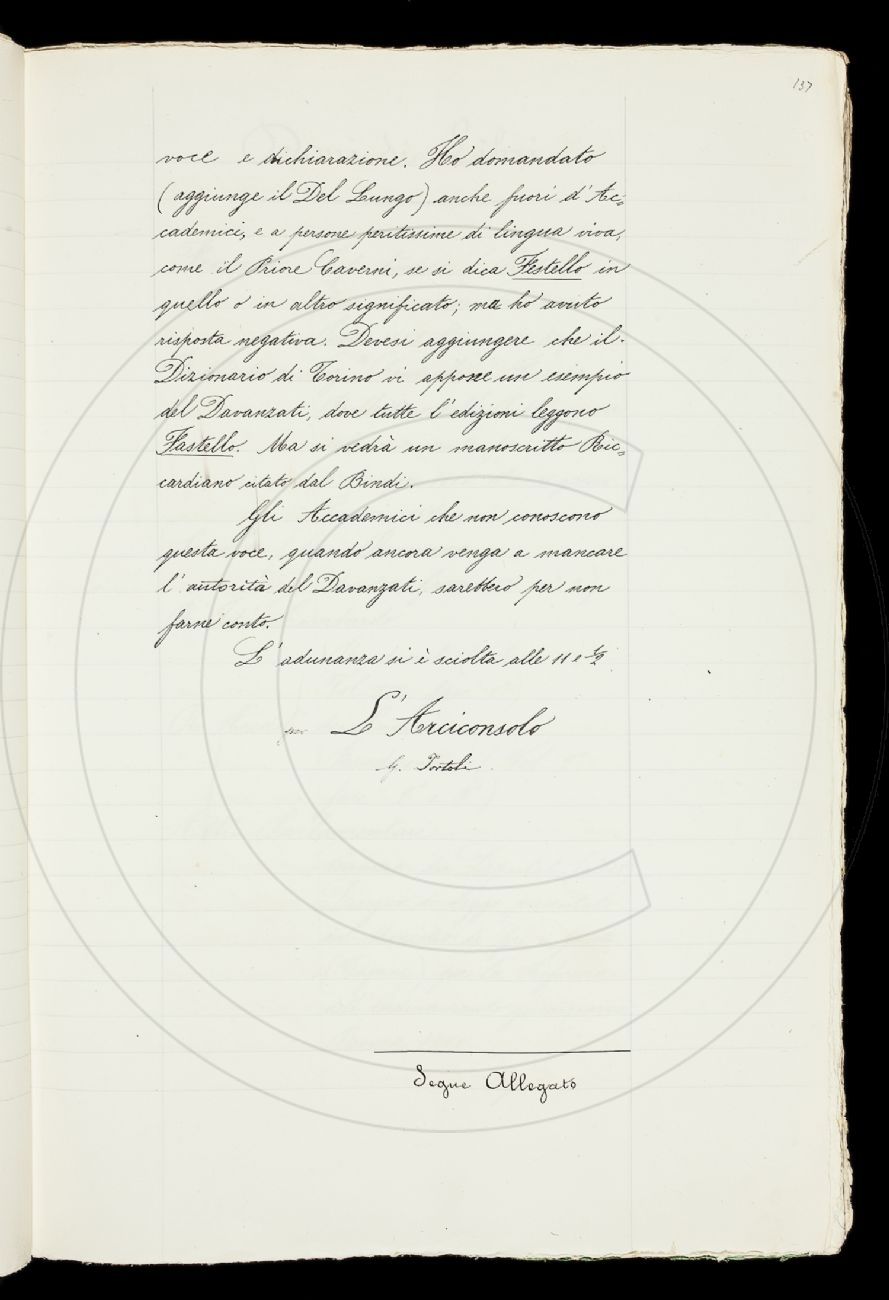 137
voce e dichiarazione. Ho domandato
(aggiunge il Del Lungo) anche fuori d'Ac=
cademici, e a persone peritissime di lingua viva,
come il Priore Caverni, se si dica Festello in
quello o in altro significato; ma ho avuto
risposta negativa. Devesi aggiungere che il
Dizionario di Torino vi appone un esempio
del Davanzati, dove tutte l'edizioni leggono
Fastello. Ma si vedrà un manoscritto Ric=
cardiano citato dal Bindi.
Gli Accademici che non conoscono
questa voce, quando ancora venga a mancare
l'autorità del Davanzati, sarebbero per non
farne conto.
L'adunanza si è sciolta alle 11 e 1/2
L'Arciconsolo
G. Tortoli
Segue Allegato